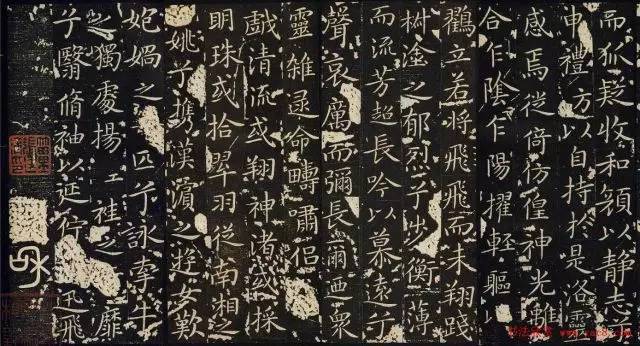 而狐疑收和顏以静志
申禮方以自持於是洛靈
感焉徙倚彷徨神光離
合乍陰乍陽擢輕軀以
鸛立若將飛飛而未翔踐
椒塗之郁烈兮步衡薄
而流芳超長吟以慕遠兮
聲哀厲而彌長爾迺衆
靈雜遝命疇嘯侶
戲清流或翔神渚或採
明珠或拾翠羽從南湘之
姚兮攜漢濱之遊女歎
妃媧之匹兮詠牽牛
之獨處揚袿之靡
兮翳脩袖以延佇迅飛